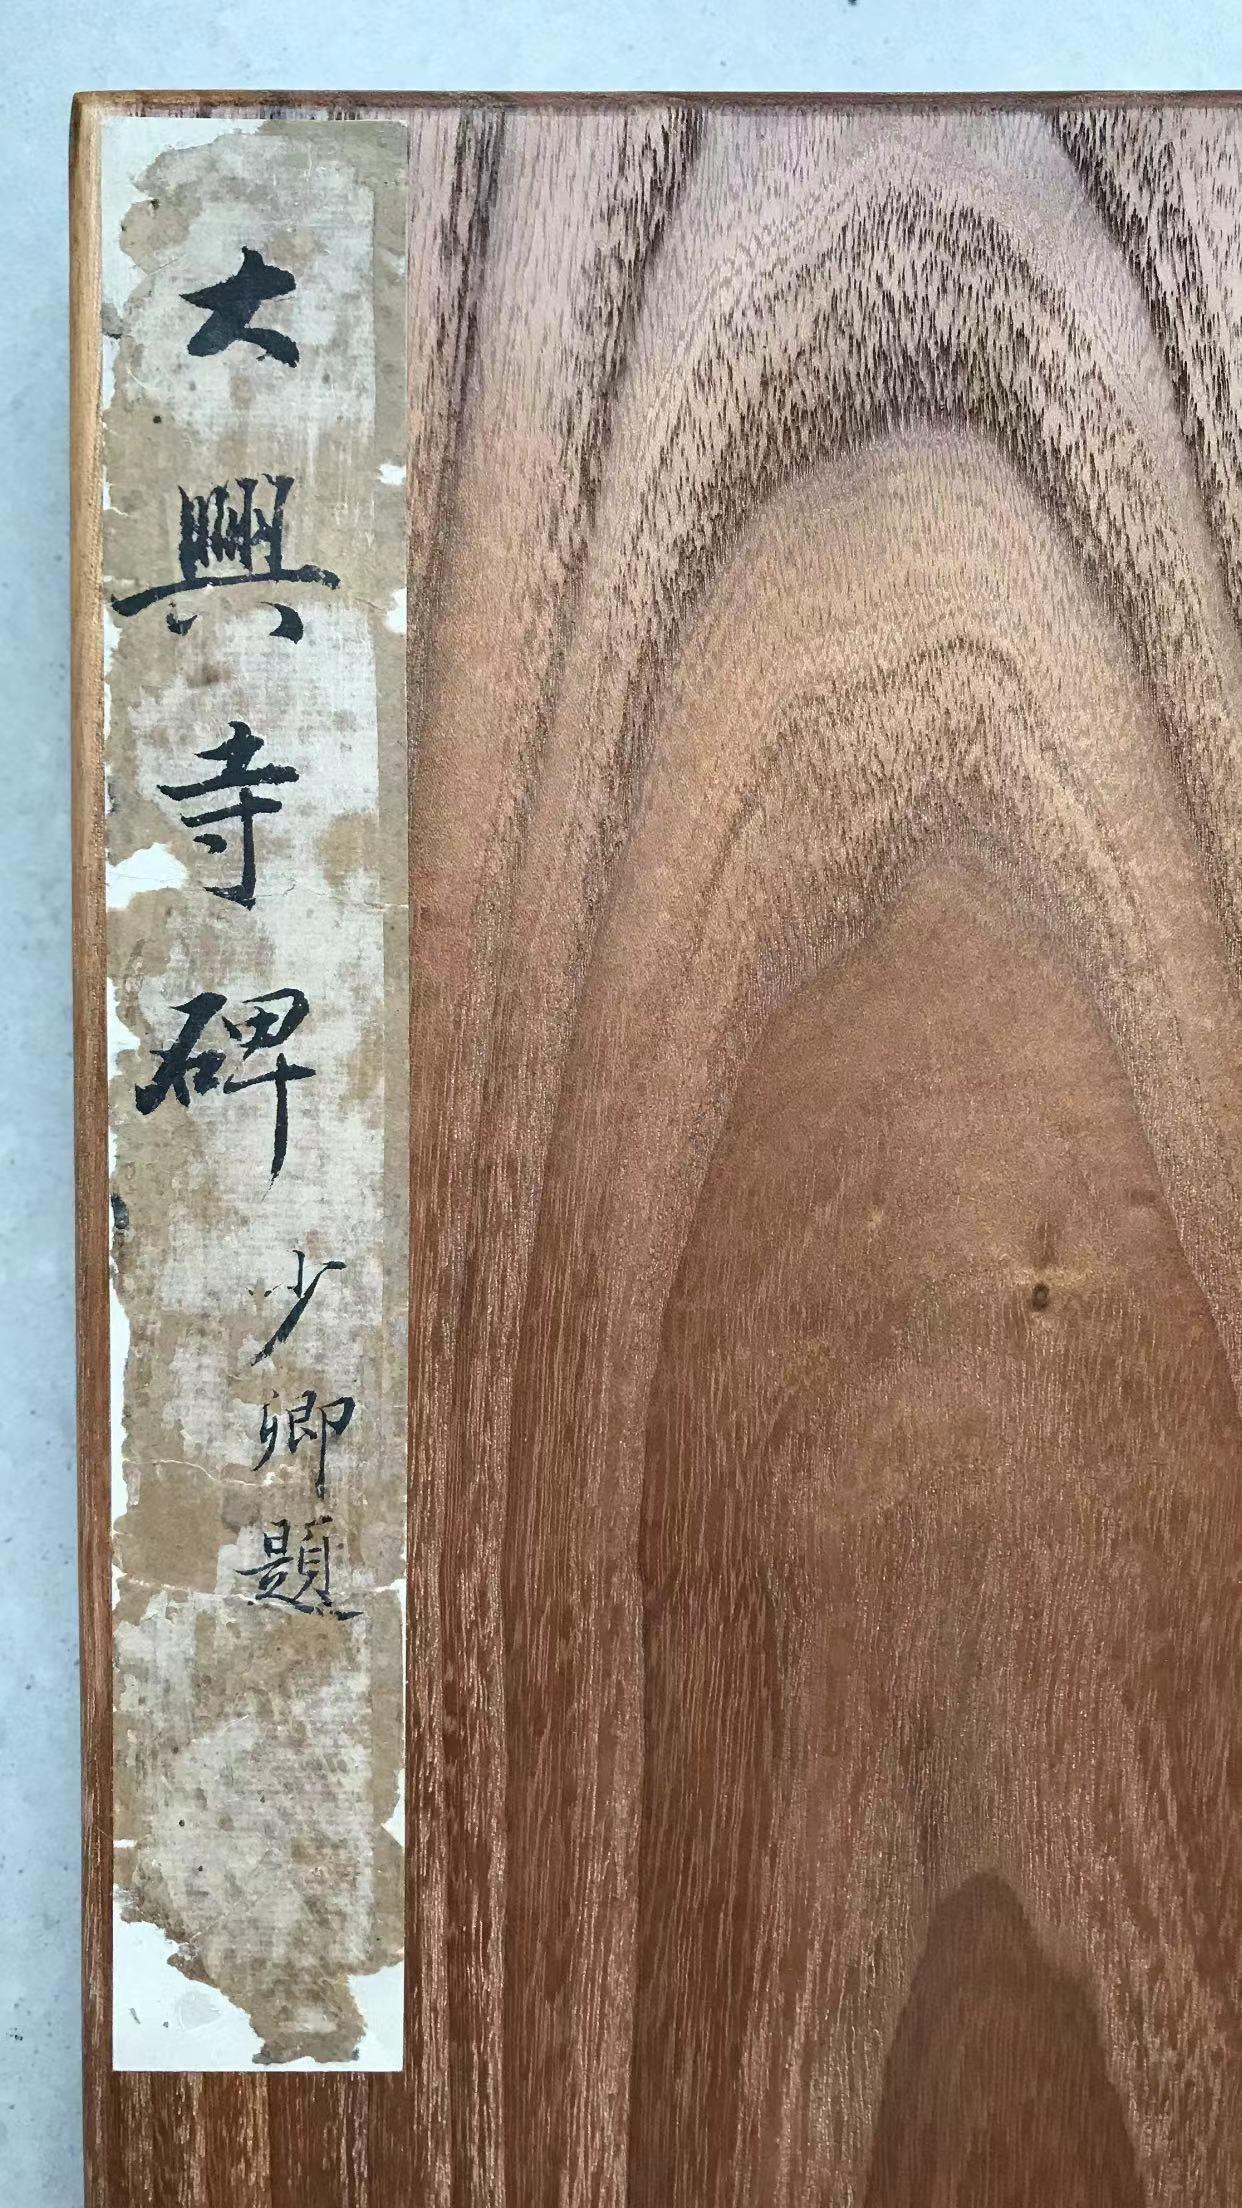 大興寺碑
少卿題